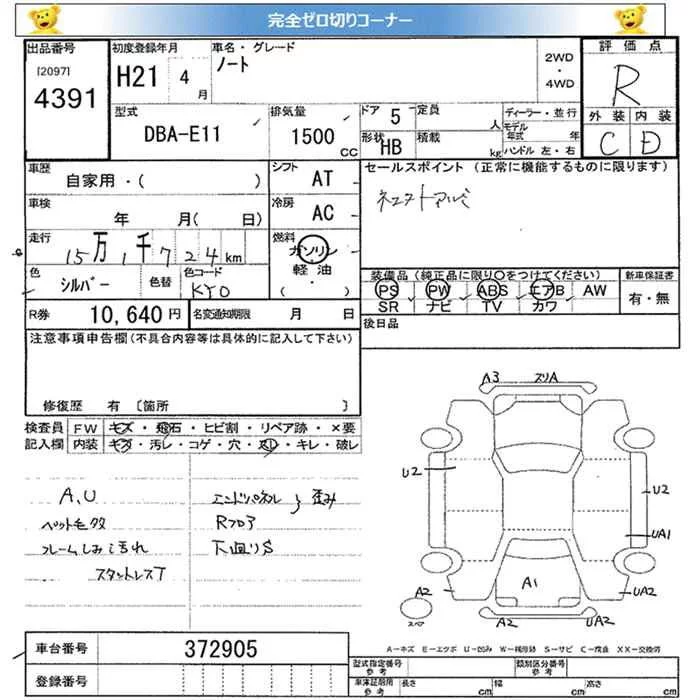 完全ゼロ切りコーナー
出品番号
[2097]
4391
初度登録年月
H21 4 月
車名・グレード
ノート
2WD
・
4WD
評価点
R
外装 内装
C D
型式
DBA-E11
排気量
1500 CC
ドア 5
定員 人
形状 HB
積載 kg
ディーラー・並行
モデル
年式 年
ハンドル 左・右
車歴
自家用・( )
シフト
AT
セールスポイント (正常に機能するものに限ります)
車検
年 月( 日)
冷房
AC
走行
15万1千724km
燃料
ガソリン
軽油
( ・ )
色
シルバー
色替
色コード
KY0
装備品 (純正品に限り○をつけてください)
PS PW ABS エアB AW
SR ナビ TV カワ
新車保証書
有・無
R券 10,640円
名変通知期限 月 日
後日品
注意事項申告欄(不具合内容等は具体的に記入して下さい)
修復歴 有 〔箇所 〕
検査員
記入欄
FW キズ・飛石・ヒビ割・リペア跡・×要
内装 キズ・汚レ・コゲ・穴・スレ・キレ・破レ
A、U
ペット毛多
フレームしみ汚れ
スタットレスT
エンドパネル 歪み
Rフロア
下廻りS
A3 スリA
U2
U2
UA1
A2
A1
A2
UA2
UA2
スペ
A−キズ E−エクボ U−凹み W−補修跡 S−サビ C−腐食 XX−交換済
車台番号 372905
登録番号
型式指定番号
参考
類別区分番号
参考
車庫証明用
参考
長さ cm 幅 cm 高さ cm